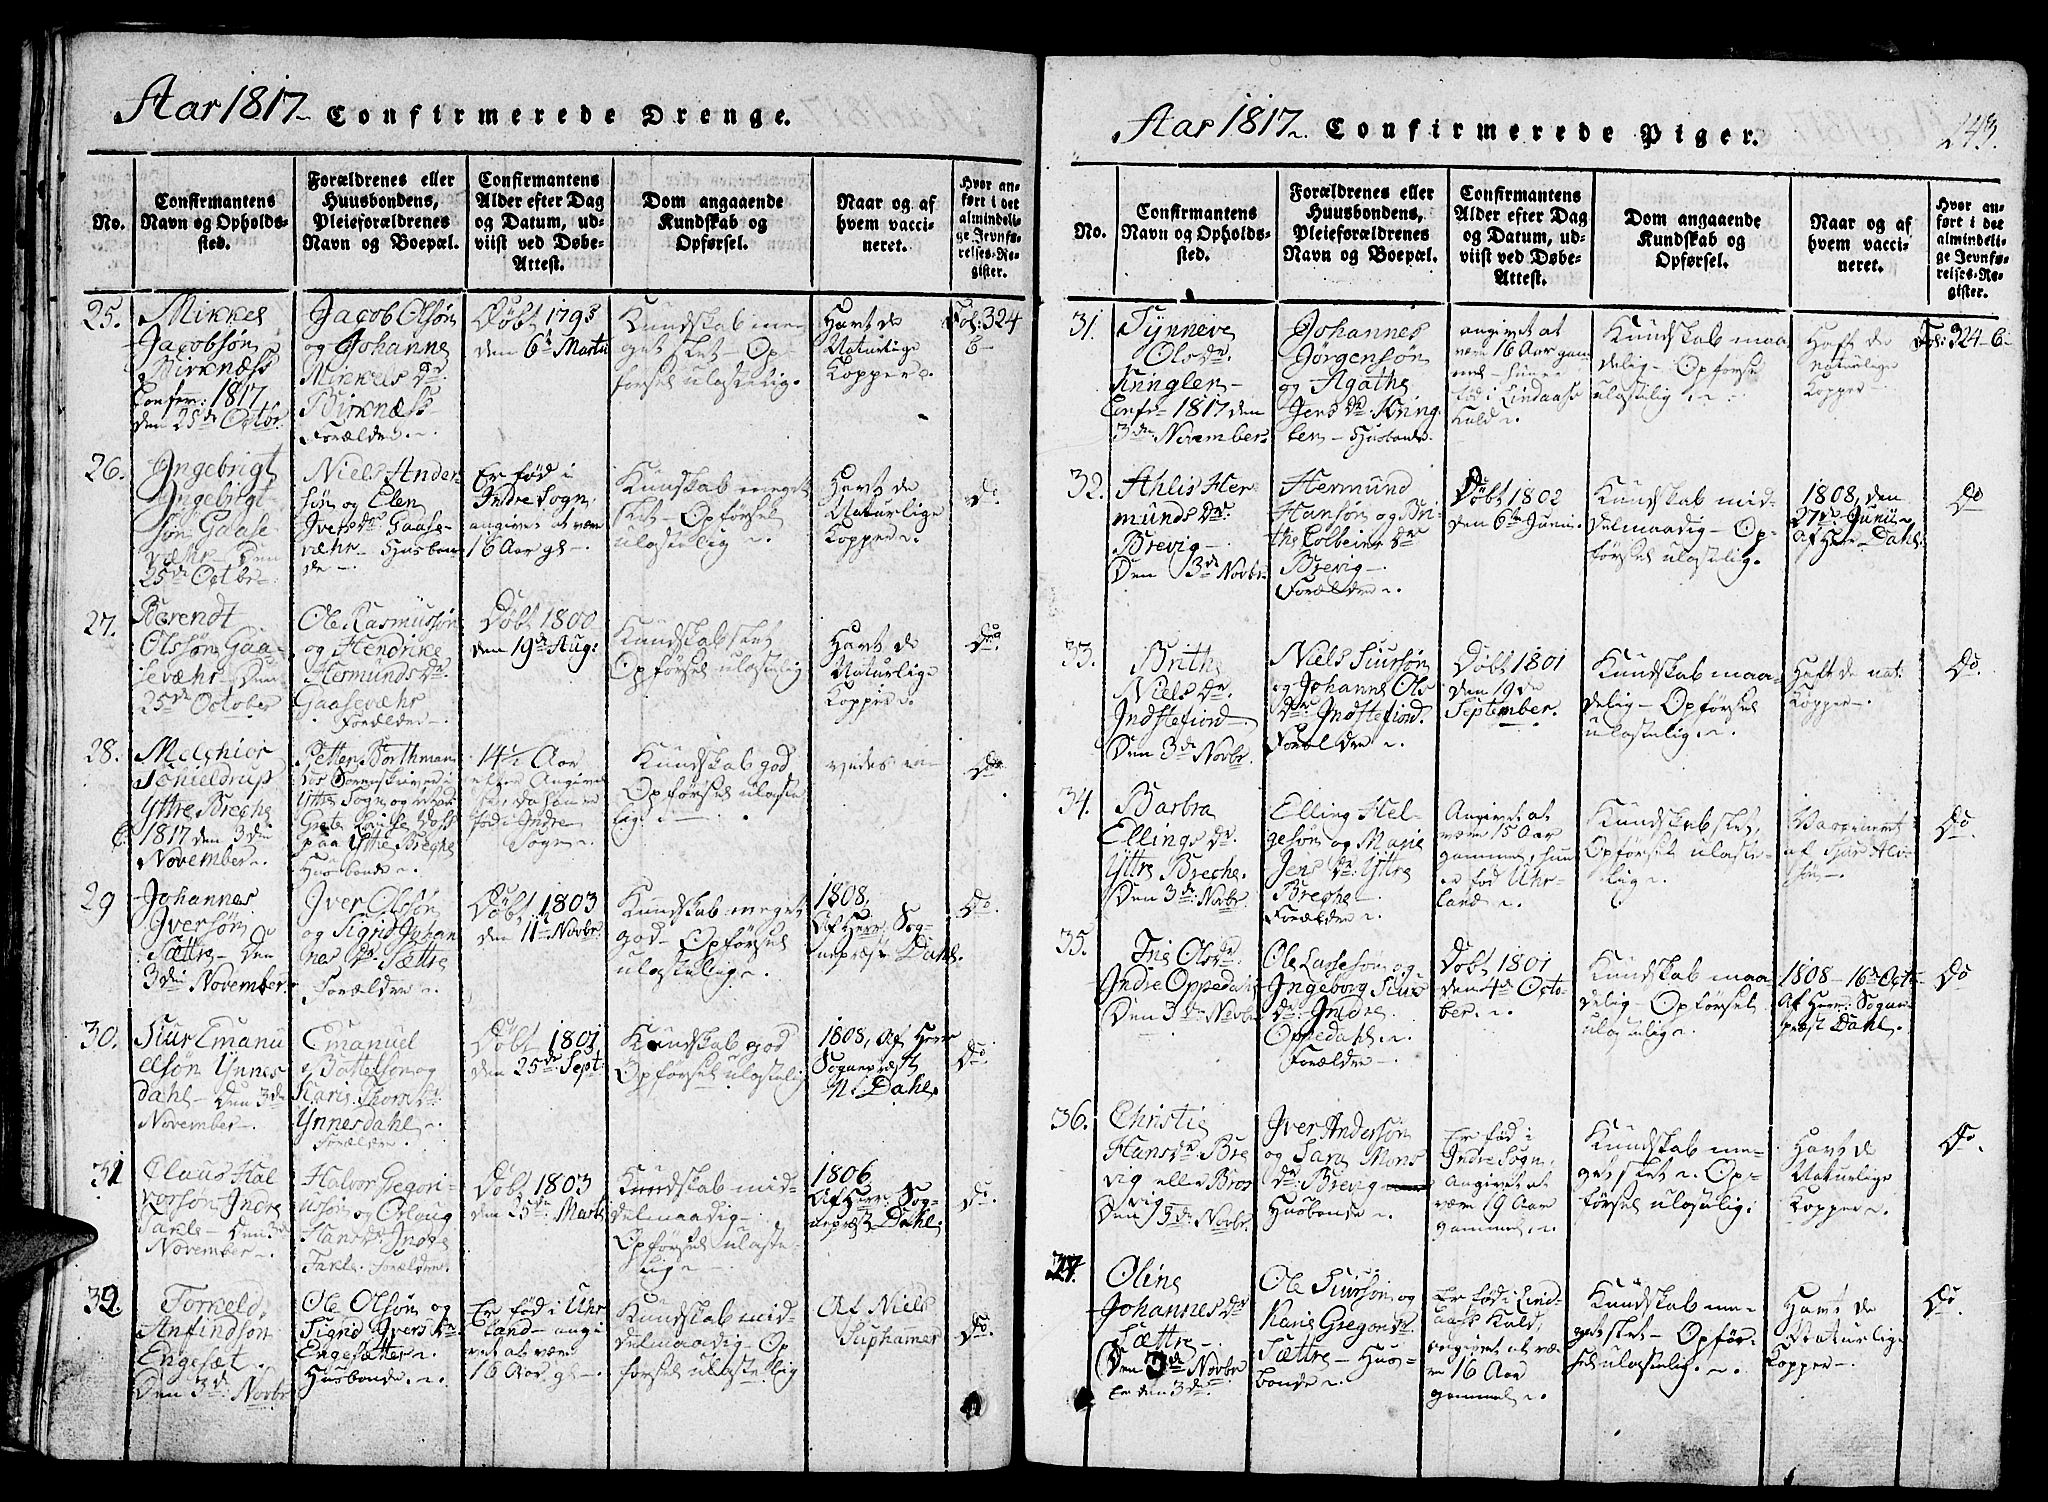 Aar 1817 Confirmerede Drenge.
No.
Confirmantens
Navn og Opholds-
sted.
Forældrenes eller
Huusbondens,
Pleieforældrenes
Navn og Boepæl.
Confirmantens
Alder efter Dag
og Datum, ud-
viist ved Døbe-
Attest.
Dom angaaende
Kundskab og
Opførsel.
Naar og af
hvem vacci-
neret.
Hvor an-
ført i det
almindeli-
ge Jevnfø-
relses-Re-
gister.
25.
Mikkel
Jacobsøn
Birknæss
Confir: 1817
den 25de Octbr.
Jacob Olsøn
og Johanne
Mikkels dr.
Birknæss
Forældre
Døbt 1795
den 6te Martii
Kundskab me-
get slet - Op-
førsel ulastelig.
Havt de
Naturlige
Kopper.
Fol: 324
6
26.
Ingebrigt
Ingebrigt-
søn Gaase-
væhr Den
25de Octbr
Niels Ander-
søn og Elen
Ivers dr: Gaase-
væhr - Husbon-
de
Er fød i
Indre Sogn
angivet at være
16 Aar gl -
Kundskab meget
slet - Opførsel
ulastelig
Havt de
Naturlige
Kopper
Do.
27.
Berendt
Olssøn Gaa-
sevæhr Den
25de October
Ole Rasmussøn
og Hendrike
Hermunds dr.
Gaasevæhr
Forældre
Døbt 1800
den 19de Aug:
Kundskab slet
Opførsel ulastelig
Havt de
Naturlige
Kopper
Do
28.
Melchior
Schieldrup
Yttre Breghe
C. 1817 den 3die
November
Petter Borthman
Sorenskriver i
Yttre Sogn og
Grete Lovise
paa Yttre Breghe
Husbonde
14½ Aar
efter Angivel
da han er
fød i Indre
Sogn
Kundskab god
Opførsel ulaste
lige
Do
29
Johannes
Iversøn
Sættre - Den
3die November
Iver Olsøn
og Sigrid Johan
nes Dr. Sættre
Forældre
Døbt 1803
den 11te Novbr.
Kundskab meget
god - Opførsel
ulastelig.
1808,
Af Herr Sog-
nepræst Dahl.
Do.
30.
Siur Emanu
elsøn Ynnes
dahl - Den 3die
November
Emanuel
Bottelsøn og
Karis Thorn Dr
Ynnesdahl
Forældre
Døbt 1801
den 25de Sept:
Kundskab god
Opførsel ulastelig
1808, Af Herr
Sognepræst
N: Dahl
Do.
31
Claus Hal
vorsøn Indre
Takle - Den 3de
November
Halvor Gregori-
ussøn og Orlaug
Hans Dr Indre
Takle Forældre
Døbt 1803
den 25de Marts
Kundskab mid-
delmaadig -
Opførsel ulaste-
lig
1806
Af Herr Sog-
nepræst Dahl
Do.
32.
Torkeld
Anfindsøn
Engesæt
Den 3de Novbr
Ole Olsøn og
Sigrid Ivers dr
Engesætter
Husbonde
Er fød i Uhr
land - angi
vet at være
16 Aar gl -
Kundskab mid-
delmaadig - Op
førsel ulastelig
Af Niels
Suphamer
Do.
Aar 1817 Confirmerede Piger.
243.
No.
Confirmantens
Navn og Opholds-
sted.
Forældrenes eller
Huusbondens,
Pleieforældrenes
Navn og Boepæl.
Confirmantens
Alder efter Dag
og Datum, ud-
viist ved Døbe-
Attest.
Dom angaaende
Kundskab og
Opførsel.
Naar og af
hvem vacci-
neret.
Hvor an-
ført i det
almindeli-
ge Jevnfø-
relses-Re-
gister.
31.
Synneve
Ols dr.
Confr 1817 den
3die November
Johannes
Jørgensøn
og Agathe
Jens dr Kring-
len - Husbonde
angivet at
være 16 Aar gam
mel - hun er
fød i Lindaass
Kald
Kundskab maa
delig - Opførsel
ulastelig
Haft de
naturlige
Kopper
Fol: 324-6-
32.
Ahlis Her-
munds dr.
Brevig -
Den 3de Novbr
Hermund
Hansøn og Bri-
the Colbeins dr
Brevig -
Forældre
Døbt 1802
den 6te Junii
Kundskab mid-
delmaadig - Op-
førsel ulastelig.
1808, den
27de Junii
af Herr Dahl.
Do
33.
Brithe
Niels dr.
Indstefiord
Den 3de Novbr
Niels Siursøn
og Johanne Ols
dr Indstefiord.
Forældre
Døbt 1801
den 19de
September.
Kundskab maa-
delig - Opførsel
ulastelig
Haft de nat:
Kopper
Do.
34.
Barbra
Ellings dr.
Yttre Breghe.
Den 3de Novbr.
Elling Hel-
gesøn og Marie
Jens Dr: Yttre
Breghe
Forældre
Angivet at
være 15 Aar
gammel, hun
er fød Uhr-
land
Kundskab slet,
Opførsel ulaste-
lig
Vaccineret
af
Do
35.
Ols dr.
Indre Oppedal
Den 3de Novbr
Ole Larsøn og
Ingeborg Siurs
dr. Indre
Oppedahl
Forældre
Døbt 1801
den 4de Octo-
ber
Kundskab maa
delig - Opførsel
ulastelig
1808 - 16de Octo
Af Herr: Sogne
præst Dahl.
Do
36.
Christie
Hans dr. Bre
vig eller Bros
vig
Den 3de Novbr
Iver Andersøn
og Sara Mons
dr. Brevig
Husbonde
Er fød i
Indre Sogn,
Angivet at
være 19 Aar
gammel
Kundskab me-
get slet - Op-
førsel ulastelig
Havt de
Naturlige
Kopper
Do.
37.
Oline
Johannes dr
Sættre
Den 3de Novbr
Er den 3de
Ole Siursøn og
Karis Gregori dr.
Sættre - Hus-
bonde
Er fød i Lind-
aass Kald,
angivet at væ-
re 16 Aar
gammel
Kundskab me-
get slet - Opfør-
sel ulastelig
Havt de
Naturlige
Kopper
Do